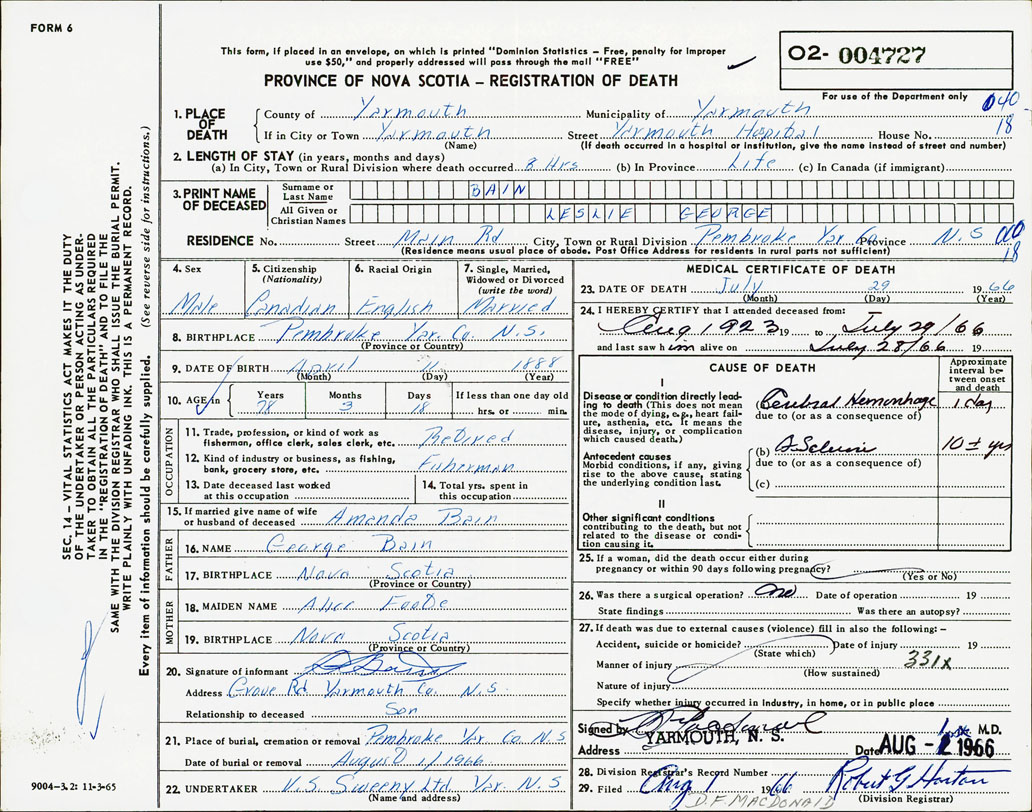 FORM 6
This form, if placed in an envelope, on which is printed "Dominion Statistics – Free, penalty for improper
use $50," and properly addressed will pass through the mail "FREE"
PROVINCE OF NOVA SCOTIA – REGISTRATION OF DEATH
O2- 004727
For use of the Department only
040
18
1. PLACE OF DEATH
County of Yarmouth Municipality of Yarmouth
If in City or Town Yarmouth Street Yarmouth Hospital House No.
(Name) (If death occurred in a hospital or institution, give the name instead of street and number)
2. LENGTH OF STAY (in years, months and days)
(a) In City, Town or Rural Division where death occurred 8 Hrs (b) In Province Life (c) In Canada (if immigrant)
3. PRINT NAME OF DECEASED
Surname or Last Name BAIN
All Given or Christian Names LESLIE GEORGE
RESIDENCE No. Street Main Rd City, Town or Rural Division Pembroke Yar. Co. Province N.S
(Residence means usual place of abode. Post Office Address for residents in rural parts not sufficient)
18
4. Sex Male
5. Citizenship (Nationality) Canadian
6. Racial Origin English
7. Single, Married, Widowed or Divorced (write the word) Married
8. BIRTHPLACE Pembroke Yar. Co. N.S.
(Province or Country)
9. DATE OF BIRTH April 11 1888
(Month) (Day) (Year)
10. AGE in Years 78 Months 3 Days 18 If less than one day old hrs. or min.
OCCUPATION
11. Trade, profession or kind of work as fisherman, office clerk, sales clerk, etc. Retired
12. Kind of industry or business, as fishing, bank, grocery store, etc. Fisherman
13. Date deceased last worked at this occupation
14. Total yrs. spent in this occupation
15. If married give name of wife or husband of deceased Amanda Bain
FATHER
16. NAME George Bain
17. BIRTHPLACE Nova Scotia
(Province or Country)
MOTHER
18. MAIDEN NAME Alice
19. BIRTHPLACE Nova Scotia
(Province or Country)
20. Signature of informant
Address Grove Rd Yarmouth Co. N.S.
Relationship to deceased Son
21. Place of burial, cremation or removal Pembroke Yar. Co N.S
Date of burial or removal August 1/1966
22. UNDERTAKER V.S. Sweeny Ltd Yar. N.S
(Name and address)
MEDICAL CERTIFICATE OF DEATH
23. DATE OF DEATH July 29 1966
(Month) (Day) (Year)
24. I HEREBY CERTIFY that I attended deceased from:
Aug 1923 19 to July 29/66 19
and last saw him alive on July 28/66 19
CAUSE OF DEATH
Approximate interval between onset and death
I
Disease or condition directly leading to death (This does not mean the mode of dying, e.g., heart failure, asthenia, etc. It means the disease, injury, or complication which caused death.)
(a) Cerebral Hemorrhage 1 day
due to (or as a consequence of)
Antecedent causes
Morbid conditions, if any, giving rise to the above cause, stating the underlying condition last.
(b) 10 ± yrs
due to (or as a consequence of)
(c)
II
Other significant conditions contributing to the death, but not related to the disease or condition causing it.
25. If a woman, did the death occur either during
pregnancy or within 90 days following pregnancy?
(Yes or No)
26. Was there a surgical operation? no Date of operation 19
State findings Was there an autopsy?
27. If death was due to external causes (violence) fill in also the following: –
Accident, suicide or homicide? Date of injury 19
(State which)
Manner of injury 331x
(How sustained)
Nature of injury
Specify whether injury occurred in Industry, in home, or in public place
Signed by M.D.
Address YARMOUTH, N. S. Date AUG - 1966
28. Division Registrar's Record Number
29. Filed Aug 1 1966 Robert G Horton
(Division Registrar)
D.F. MACDONALD
SEC. 14 – VITAL STATISTICS ACT MAKES IT THE DUTY
OF THE UNDERTAKER OR PERSON ACTING AS UNDER-
TAKER TO OBTAIN ALL THE PARTICULARS REQUIRED
IN THE "REGISTRATION OF DEATH" AND TO FILE THE
SAME WITH THE DIVISION REGISTRAR WHO SHALL ISSUE THE BURIAL PERMIT.
WRITE PLAINLY WITH UNFADING INK. THIS IS A PERMANENT RECORD.
Every item of information should be carefully supplied. (See reverse side for instructions.)
9004–3.2: 11-3-65